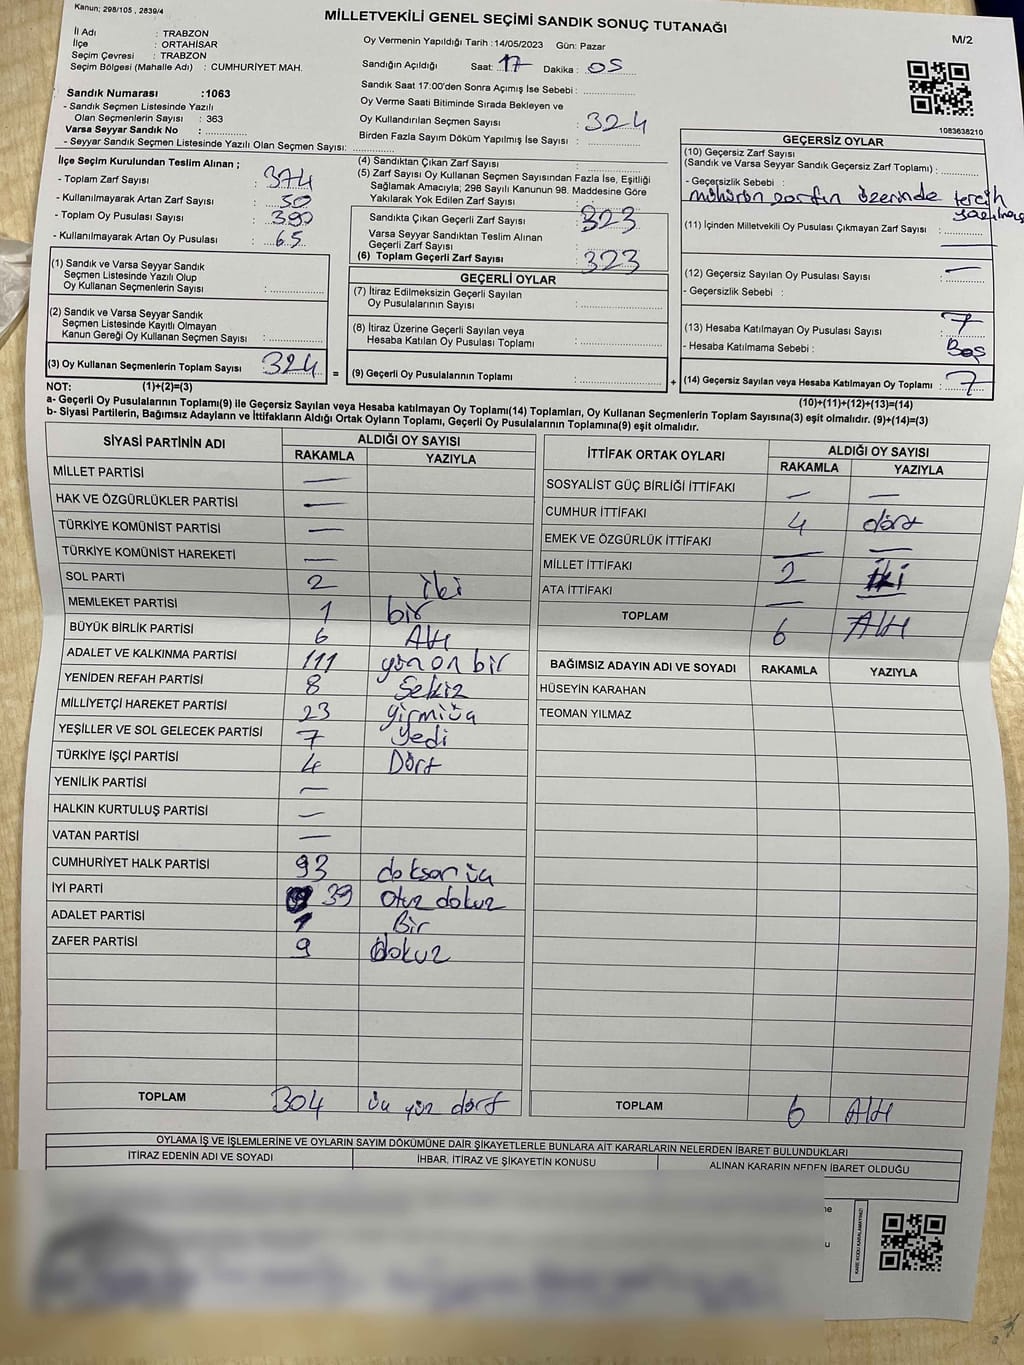 Kanun; 298/105 , 2839/4
MİLLETVEKİLİ GENEL SEÇİMİ SANDIK SONUÇ TUTANAĞI
M/2
İl Adı : TRABZON
İlçe : ORTAHİSAR
Seçim Çevresi : TRABZON
Seçim Bölgesi (Mahalle Adı) : CUMHURİYET MAH.
Sandık Numarası :1063
- Sandık Seçmen Listesinde Yazılı
Olan Seçmenlerin Sayısı : 363
Varsa Seyyar Sandık No :
- Seyyar Sandık Seçmen Listesinde Yazılı Olan Seçmen Sayısı:
Oy Vermenin Yapıldığı Tarih :14/05/2023 Gün: Pazar
Sandığın Açıldığı Saat: 17 Dakika : 05
Sandık Saat 17:00'den Sonra Açımış İse Sebebi :
Oy Verme Saati Bitiminde Sırada Bekleyen ve
Oy Kullandırılan Seçmen Sayısı : 324
Birden Fazla Sayım Döküm Yapılmış İse Sayısı :
1083638210
İlçe Seçim Kurulundan Teslim Alınan ;
- Toplam Zarf Sayısı : 374
- Kullanılmayarak Artan Zarf Sayısı : 50
- Toplam Oy Pusulası Sayısı : 390
- Kullanılmayarak Artan Oy Pusulası : 65
(1) Sandık ve Varsa Seyyar Sandık
Seçmen Listesinde Yazılı Olup
Oy Kullanan Seçmenlerin Sayısı :
(2) Sandık ve Varsa Seyyar Sandık
Seçmen Listesinde Kayıtlı Olmayan
Kanun Gereği Oy Kullanan Seçmen Sayısı :
(3) Oy Kullanan Seçmenlerin Toplam Sayısı : 324 =
(4) Sandıktan Çıkan Zarf Sayısı :
(5) Zarf Sayısı Oy Kullanan Seçmen Sayısından Fazla İse, Eşitliği
Sağlamak Amacıyla; 298 Sayılı Kanunun 98. Maddesine Göre
Yakılarak Yok Edilen Zarf Sayısı :
Sandıkta Çıkan Geçerli Zarf Sayısı : 323
Varsa Seyyar Sandıktan Teslim Alınan
Geçerli Zarf Sayısı :
(6) Toplam Geçerli Zarf Sayısı : 323
GEÇERLİ OYLAR
(7) İtiraz Edilmeksizin Geçerli Sayılan
Oy Pusulalarının Sayısı :
(8) İtiraz Üzerine Geçerli Sayılan veya
Hesaba Katılan Oy Pusulası Toplamı :
(9) Geçerli Oy Pusulalarının Toplamı : +
GEÇERSİZ OYLAR
(10) Geçersiz Zarf Sayısı
(Sandık ve Varsa Seyyar Sandık Geçersiz Zarf Toplamı) :
- Geçersizlik Sebebi :
mührün zarfın üzerinde tercih
(11) İçinden Milletvekili Oy Pusulası Çıkmayan Zarf Sayısı :
(12) Geçersiz Sayılan Oy Pusulası Sayısı : —
- Geçersizlik Sebebi :
(13) Hesaba Katılmayan Oy Pusulası Sayısı : 7
- Hesaba Katılmama Sebebi : Boş
(14) Geçersiz Sayılan veya Hesaba Katılmayan Oy Toplamı : 7
NOT: (1)+(2)=(3) (10)+(11)+(12)+(13)=(14)
a- Geçerli Oy Pusulalarının Toplamı(9) ile Geçersiz Sayılan veya Hesaba katılmayan Oy Toplamı(14) Toplamları, Oy Kullanan Seçmenlerin Toplam Sayısına(3) eşit olmalıdır. (9)+(14)=(3)
b- Siyasi Partilerin, Bağımsız Adayların ve İttifakların Aldığı Ortak Oyların Toplamı, Geçerli Oy Pusulalarının Toplamına(9) eşit olmalıdır.
SİYASİ PARTİNİN ADI ALDIĞI OY SAYISI
RAKAMLA YAZIYLA
MİLLET PARTİSİ —
HAK VE ÖZGÜRLÜKLER PARTİSİ —
TÜRKİYE KOMÜNİST PARTİSİ —
TÜRKİYE KOMÜNİST HAREKETİ —
SOL PARTİ 2 iki
MEMLEKET PARTİSİ 1 bir
BÜYÜK BİRLİK PARTİSİ 6 Altı
ADALET VE KALKINMA PARTİSİ 111 yüz on bir
YENİDEN REFAH PARTİSİ 8 Sekiz
MİLLİYETÇİ HAREKET PARTİSİ 23 yirmiüç
YEŞİLLER VE SOL GELECEK PARTİSİ 7 yedi
TÜRKİYE İŞÇİ PARTİSİ 4 Dört
YENİLİK PARTİSİ —
HALKIN KURTULUŞ PARTİSİ —
VATAN PARTİSİ —
CUMHURİYET HALK PARTİSİ 93 doksan üç
İYİ PARTİ 39 Otuz dokuz
ADALET PARTİSİ 1 Bir
ZAFER PARTİSİ 9 dokuz
TOPLAM 304 üç yüz dört
İTTİFAK ORTAK OYLARI ALDIĞI OY SAYISI
RAKAMLA YAZIYLA
SOSYALİST GÜÇ BİRLİĞİ İTTİFAKI — —
CUMHUR İTTİFAKI 4 dört
EMEK VE ÖZGÜRLÜK İTTİFAKI — —
MİLLET İTTİFAKI 2 iki
ATA İTTİFAKI —
TOPLAM 6 Altı
BAĞIMSIZ ADAYIN ADI VE SOYADI RAKAMLA YAZIYLA
HÜSEYİN KARAHAN
TEOMAN YILMAZ
TOPLAM 6 Altı
OYLAMA İŞ VE İŞLEMLERİNE VE OYLARIN SAYIM DÖKÜMÜNE DAİR ŞİKAYETLERLE BUNLARA AİT KARARLARIN NELERDEN İBARET BULUNDUKLARI
İTİRAZ EDENİN ADI VE SOYADI İHBAR, İTİRAZ VE ŞİKAYETİN KONUSU ALINAN KARARIN NEDEN İBARET OLDUĞU
KARE KODU KARALAMAYINIZ!